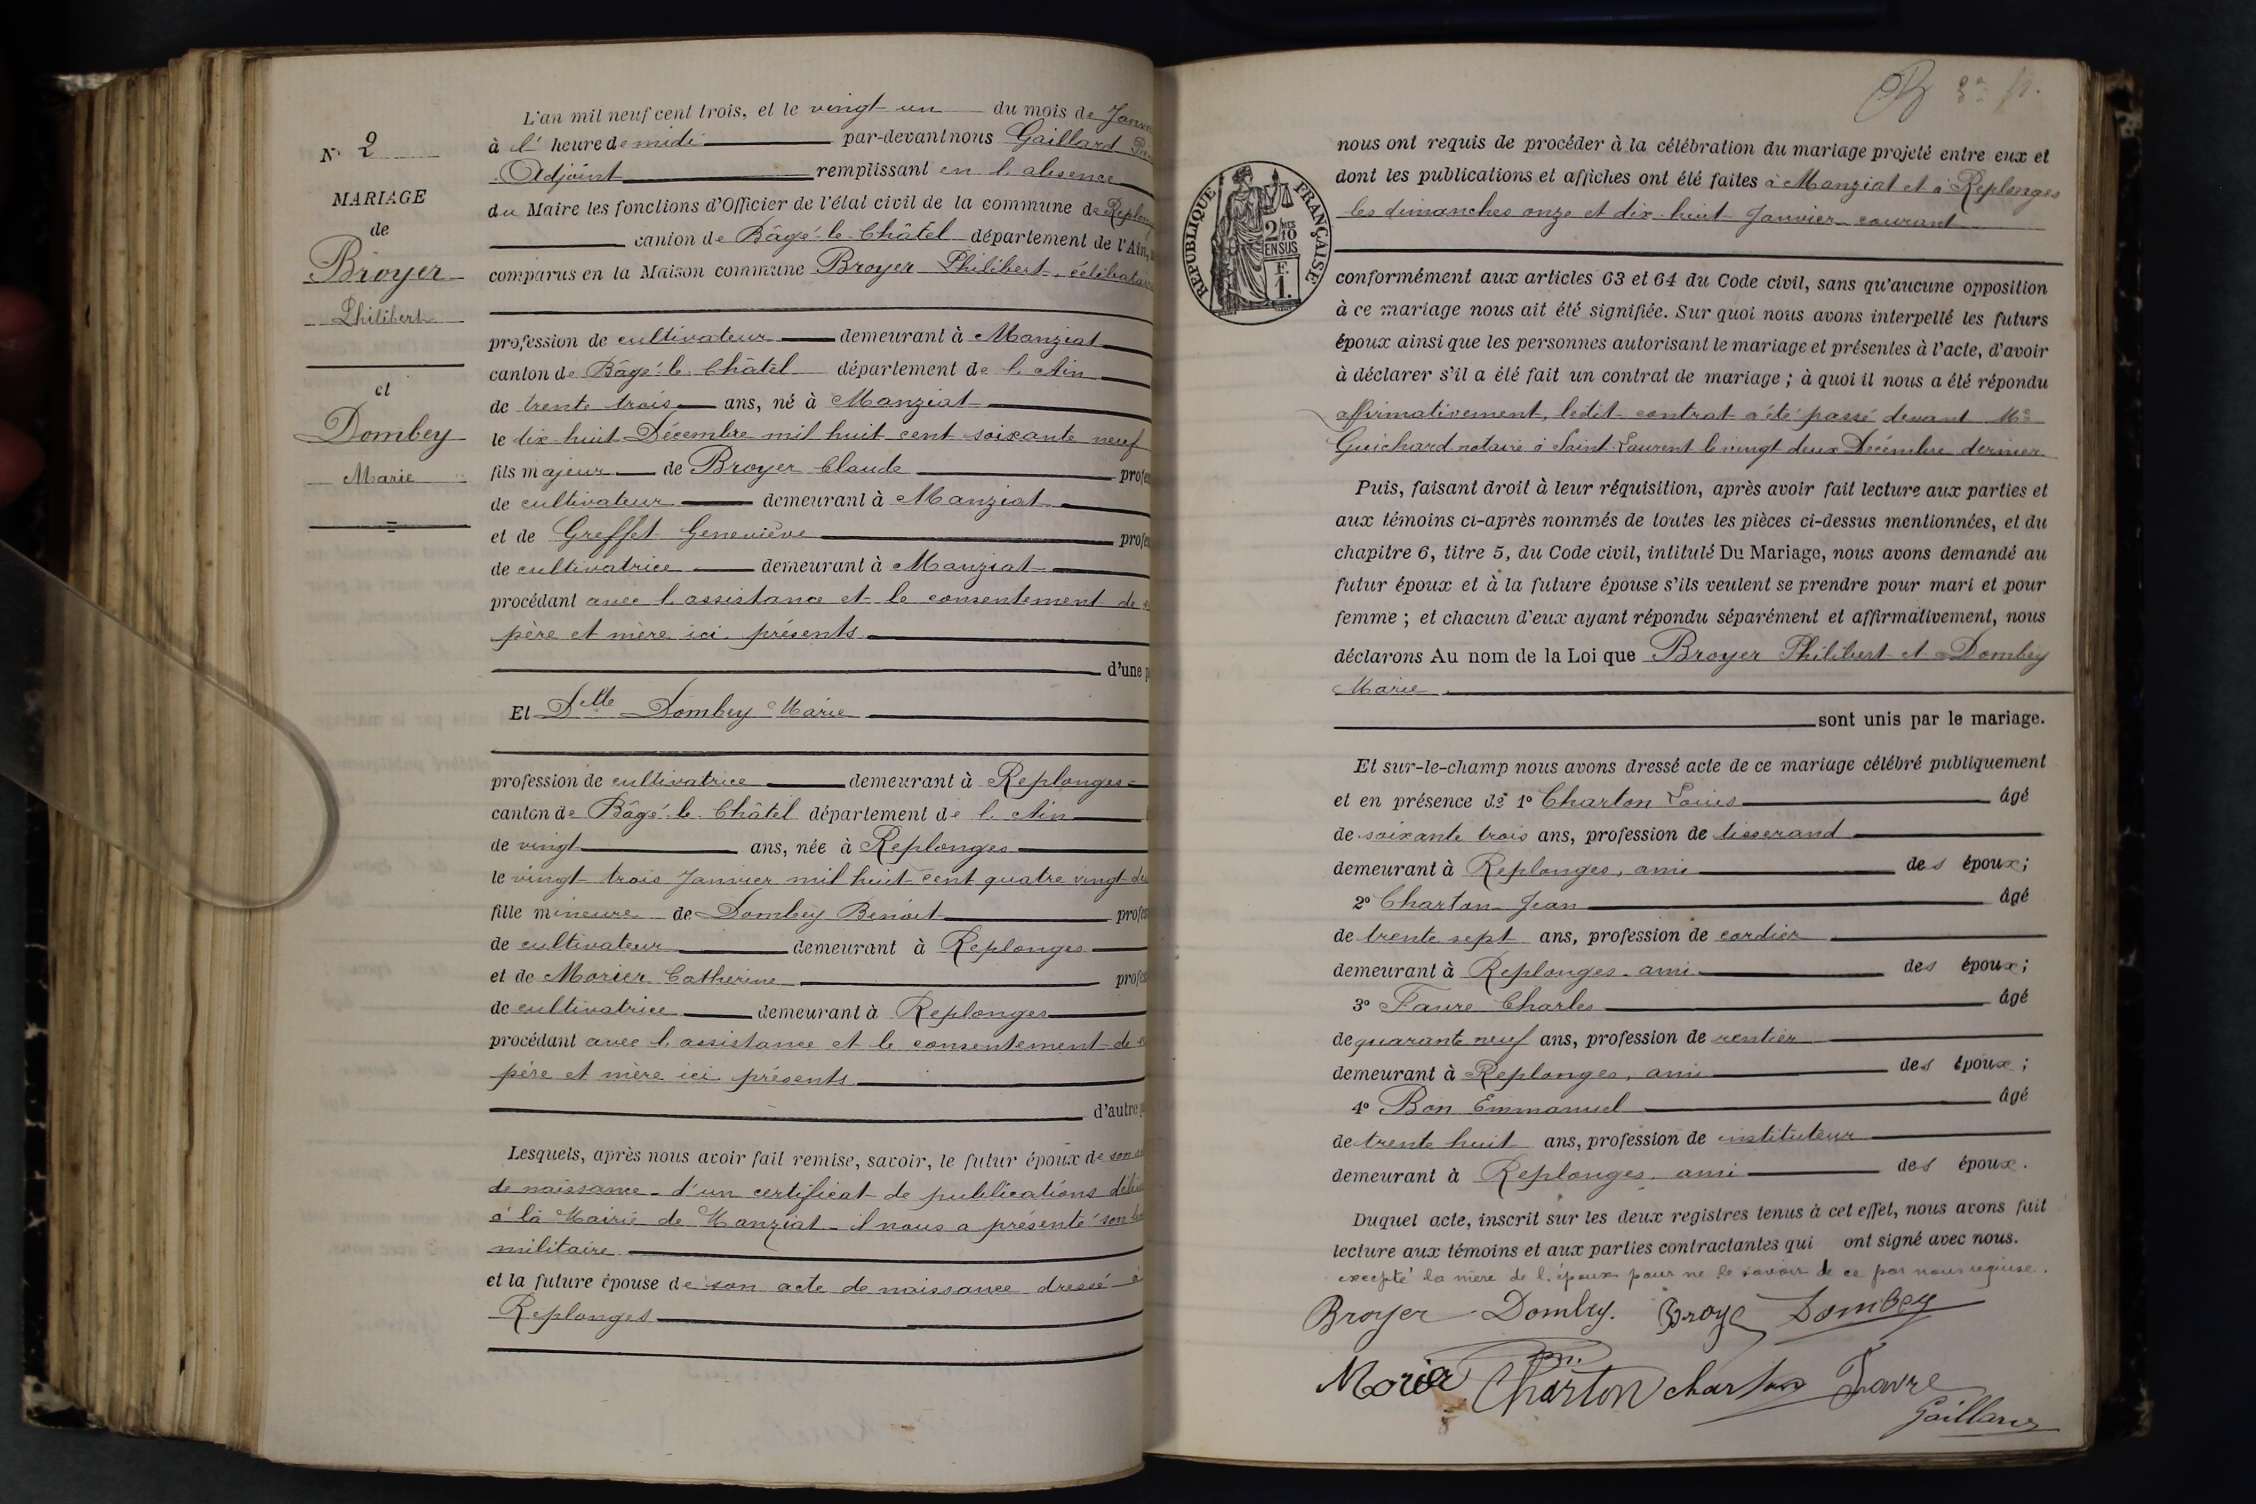 N° 2
MARIAGE
de
Broyer
Philibert
et
Dombey
Marie
L'an mil neuf cent trois, et le vingt un du mois de
à l' heure de midi par-devant nous Gaillard
Adjoint remplissant en l'absence
du Maire les fonctions d'Officier de l'état civil de la commune de
canton de Bâgé-le-Châtel département de l'Ain,
comparus en la Maison commune Broyer Philibert, célibataire
profession de cultivateur demeurant à Manziat
canton de Bâgé-le-Châtel département de l'Ain
de trente trois ans, né à Manziat
le dix huit Décembre mil huit cent soixante neuf
fils majeur de Broyer Claude
de cultivateur demeurant à Manziat
et de Greffet Geneviève
de cultivatrice demeurant à Manziat
procédant avec l'assistance et le consentement de
père et mère ici présents
d'une
Et Delle Dombey Marie
profession de cultivatrice demeurant à Replonges
canton de Bâgé-le-Châtel département de l'Ain
de vingt ans, née à Replonges
le vingt trois Janvier mil huit cent quatre vingt
fille mineure de Dombey Benoit
de cultivateur demeurant à Replonges
et de Morier Catherine
de cultivatrice demeurant à Replonges
procédant avec l'assistance et le consentement de
père et mère ici présents
d'autre
Lesquels, après nous avoir fait remise, savoir, le futur époux de son
de naissance - d'un certificat de publications
à la Mairie de Manziat - il nous a présenté son
militaire
et la future épouse de son acte de naissance dressé à
Replonges
RÉPUBLIQUE FRANÇAISE
2 10
EN SUS
F.
1.
nous ont requis de procéder à la célébration du mariage projeté entre eux et
dont les publications et affiches ont été faites à Manziat et à Replonges
les dimanches onze et dix-huit Janvier courant
conformément aux articles 63 et 64 du Code civil, sans qu'aucune opposition
à ce mariage nous ait été signifiée. Sur quoi nous avons interpellé les futurs
époux ainsi que les personnes autorisant le mariage et présentes à l'acte, d'avoir
à déclarer s'il a été fait un contrat de mariage ; à quoi il nous a été répondu
affirmativement, ledit contrat a été passé devant Me
Guichard notaire à Saint-Laurent le vingt deux Décembre dernier
Puis, faisant droit à leur réquisition, après avoir fait lecture aux parties et
aux témoins ci-après nommés de toutes les pièces ci-dessus mentionnées, et du
chapitre 6, titre 5, du Code civil, intitulé Du Mariage, nous avons demandé au
futur époux et à la future épouse s'ils veulent se prendre pour mari et pour
femme ; et chacun d'eux ayant répondu séparément et affirmativement, nous
déclarons Au nom de la Loi que Broyer Philibert et Dombey
Marie
sont unis par le mariage.
Et sur-le-champ nous avons dressé acte de ce mariage célébré publiquement
et en présence de 1° Charton Louis âgé
de soixante trois ans, profession de tisserand
demeurant à Replonges, ami des époux;
2° Charton Jean âgé
de trente sept ans, profession de cordier
demeurant à Replonges, ami des époux;
3° Favre Charles âgé
de quarante neuf ans, profession de rentier
demeurant à Replonges, ami des époux;
4° Bon Emmanuel âgé
de trente huit ans, profession de instituteur
demeurant à Replonges, ami des époux.
Duquel acte, inscrit sur les deux registres tenus à cet effet, nous avons fait
lecture aux témoins et aux parties contractantes qui ont signé avec nous.
excepté la mère de l'époux pour ne le savoir de ce par nous requise.
Broyer Dombey. Broye Dombey
Morier Charton charton Favre
Gaillard